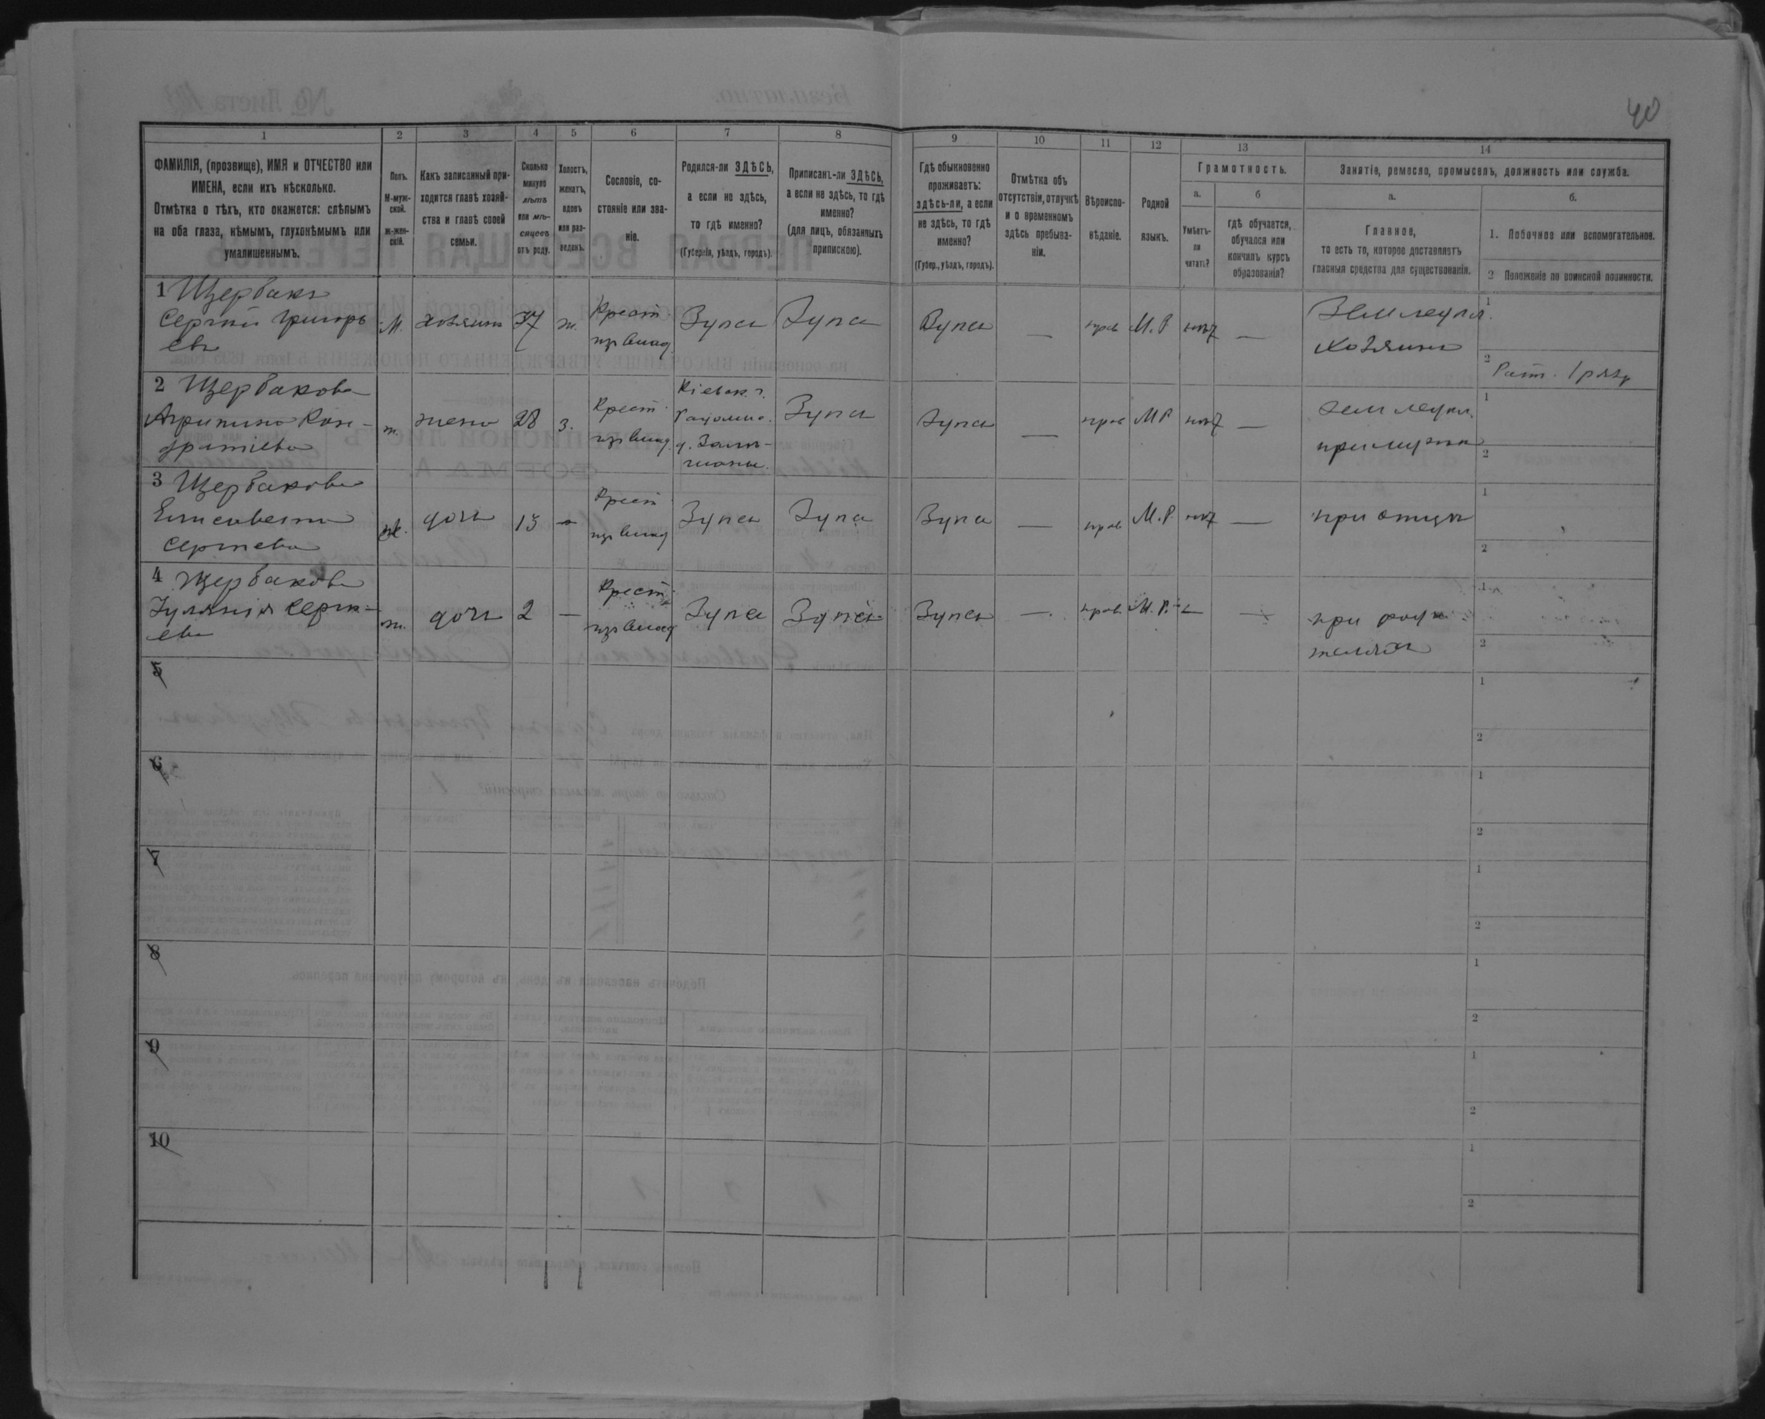 40
1 2 3 4 5 6 7 8 9 10 11 12 13 14
ФАМИЛІЯ, (прозвище), ИМЯ и ОТЧЕСТВО или
ИМЕНА, если ихъ нѣсколько.
Отмѣтка о тѣхъ, кто окажется: слѣпымъ
на оба глаза, нѣмымъ, глухонѣмымъ или
умалишеннымъ.
Полъ.
М-муж-
ской.
ж-жен-
скій.
Какъ записанный при-
ходится главѣ хозяй-
ства и главѣ своей
семьи.
Сколько
минуло
лѣтъ
или мѣ-
сяцевъ
отъ роду.
Холостъ,
женатъ,
вдовъ
или раз-
веденъ.
Сословіе, со-
стояніе или зва-
ніе.
Родился-ли ЗДѢСЬ,
а если не здѣсь,
то гдѣ именно?
(Губернія, уѣздъ, городъ).
Приписанъ-ли ЗДѢСЬ,
а если не здѣсь, то гдѣ
именно?
(для лицъ, обязанныхъ
припискою).
Гдѣ обыкновенно
проживаетъ:
здѣсь-ли, а если
не здѣсь, то гдѣ
именно?
(Губер., уѣздъ, городъ).
Отмѣтка объ
отсутствіи, отлучкѣ
и о временномъ
здѣсь пребыва-
ніи.
Вѣроиспо-
вѣданіе.
Родной
языкъ.
Грамотность.
а.
Умѣетъ-
ли
читать?
б
гдѣ обучается,
обучался или
кончилъ курсъ
образованія?
Занятіе, ремесло, промыселъ, должность или служба.
а.
Главное,
то есть то, которое доставляетъ
главныя средства для существованія.
б.
1. Побочное или вспомогательное.
2 Положеніе по воинской повинности.
1 Щербакъ
Сергѣй Григорь
евъ
М. хозяинъ 37 ж. Крест
изъ влад Здѣсь Здѣсь Здѣсь — прав М.Р нѣт — Земледѣл.
хозяинъ
1
2 Ратн. 1 разр
2 Щербакова
Агрипина Кон-
дратіева
ж. жена 28 з. Крест
изъ влад. Кіевск. г.
Радомыс.
Здѣсь Здѣсь — прав М.Р нѣт — Земледѣл.
при мужѣ
1
2
3 Щербакова
Елисавета
Сергѣева
ж. дочь 13 — Крест
изъ влад Здѣсь Здѣсь Здѣсь — прав М.Р. нѣт — при отцѣ
1
2
4 Щербакова
Іуліанія Сергѣ-
ева
ж. дочь 2 — Крест
изъ влад Здѣсь Здѣсь Здѣсь — прав М.Р. — — при роди-
теляхъ
1
2
5
1
2
6
1
2
7
1
2
8
1
2
9
1
2
10
1
2